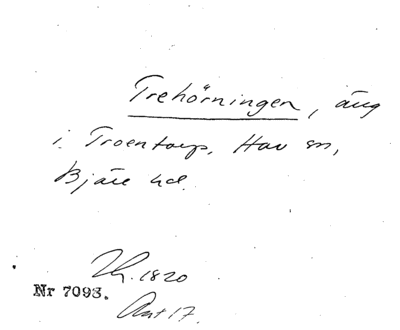 Trehörningen, äng
i Troentorp, Hov sn,
Bjäre hd.
1820
Nr 7093.
Akt 17.